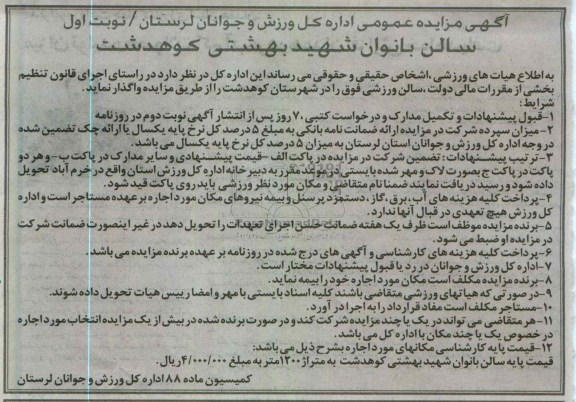 آگهی مزایده عمومی اداره کل ورزش و جوانان لرستان / نوبت اول
سالن بانوان شهید بهشتی کوهدشت
به اطلاع هیات های ورزشی ،اشخاص حقیقی و حقوقی می رساند این اداره کل در نظر دارد در راستای اجرای قانون تنظیم
بخشی از مقررات مالی دولت ،سالن ورزشی فوق را در شهرستان کوهدشت را از طریق مزایده واگذار نماید.
شرایط:
۱-قبول پیشنهادات و تکمیل مدارک و درخواست کتبی ۷۰ روز پس از انتشار آگهی نوبت دوم در روزنامه
۲-میزان سپرده شرکت در مزایده ارائه ضمانت نامه بانکی به مبلغ ۵ درصد کل نرخ پایه یکسال یا ارائه چک تضمین شده
در وجه اداره کل ورزش و جوانان استان لرستان به میزان ۵ درصد کل نرخ پایه یکسال می باشد.
۳-ترتیب پیشنهادات: تضمین شرکت در مزایده در پاکت الف -قیمت پیشنهادی و سایر مدارک در پاکت ب- و هر دو
پاکت در پاکت ج بصورت لاک و مهر شده بایستی در موعد مقرر به دبیرخانه اداره کل ورزش استان واقع در خرم آباد تحویل
داده شود و رسید دریافت نمایند ضمنا نام متقاضی و مکان مورد نظر ورزشی باید روی پاکت قید شود.
۴-پرداخت کلیه هزینه های آب، برق، گاز، دستمزد پرسنل و بیمه نیروهای مکان مورد اجاره بر عهده مستاجر است و اداره
کل ورزش هیچ تعهدی در قبال آنها ندارد.
۵-برنده مزایده موظف است ظرف یک هفته ضمانت حسن اجرای تعهدات را تحویل دهد در غیر اینصورت ضمانت شرکت
در مزایده او ضبط می شود.
۶-پرداخت کلیه هزینه های کارشناسی و آگهی های درج شده در روزنامه بر عهده برنده مزایده می باشد.
۷-اداره کل ورزش و جوانان در رد یا قبول پیشنهادات مختار است.
۸-برنده مزایده مکلف است مکان مورد اجاره خود را بیمه نماید.
۹-در صورتی که هیاتهای ورزشی متقاضی باشند کلیه اسناد بایستی با مهر و امضا رییس هیات تحویل داده شوند.
۱۰-مستاجر مکلف است مفاد قرارداد را به اجرا در آورد.
۱۱-هر متقاضی می تواند در یک یا چند مزایده شرکت کند و در صورت برنده شده در بیش از یک مزایده انتخاب مورد اجاره
در خصوص یک یا چند مکان با اداره کل می باشد.
۱۲-قیمت پایه کارشناسی مکانهای مورد اجاره بشرح ذیل می باشد:
قیمت پایه سالن بانوان شهید بهشتی کوهدشت به متراژ ۱۲۰۰ متر به مبلغ ۴/۰۰۰/۰۰۰ ریال.
کمیسیون ماده ۸۸ اداره کل ورزش و جوانان لرستان